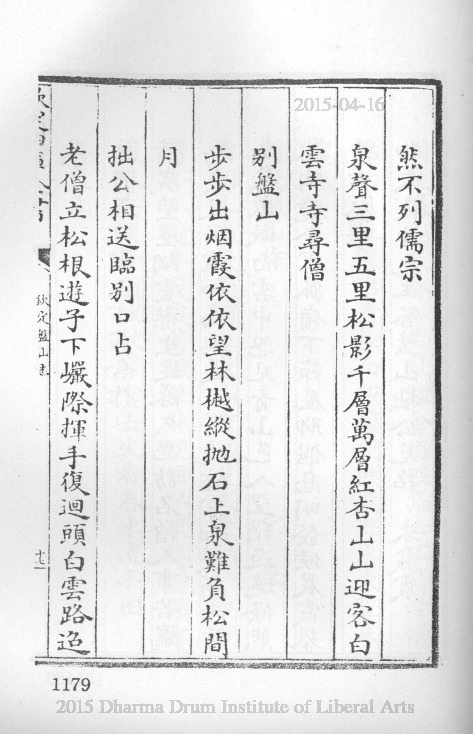 2015-04-16
然不列儒宗
泉聲三里五里松影千層萬層紅杏山山迎客白
雲寺寺尋僧
别盤山
步步出烟霞依依望林樾縱抛石上泉難負松間
月
拙公相送臨别口占
老僧立松根遊子下巖際揮手復迴頭白雲路迢
欽定盤山志
十七
1179
2015 Dharma Drum Institute of Liberal Arts